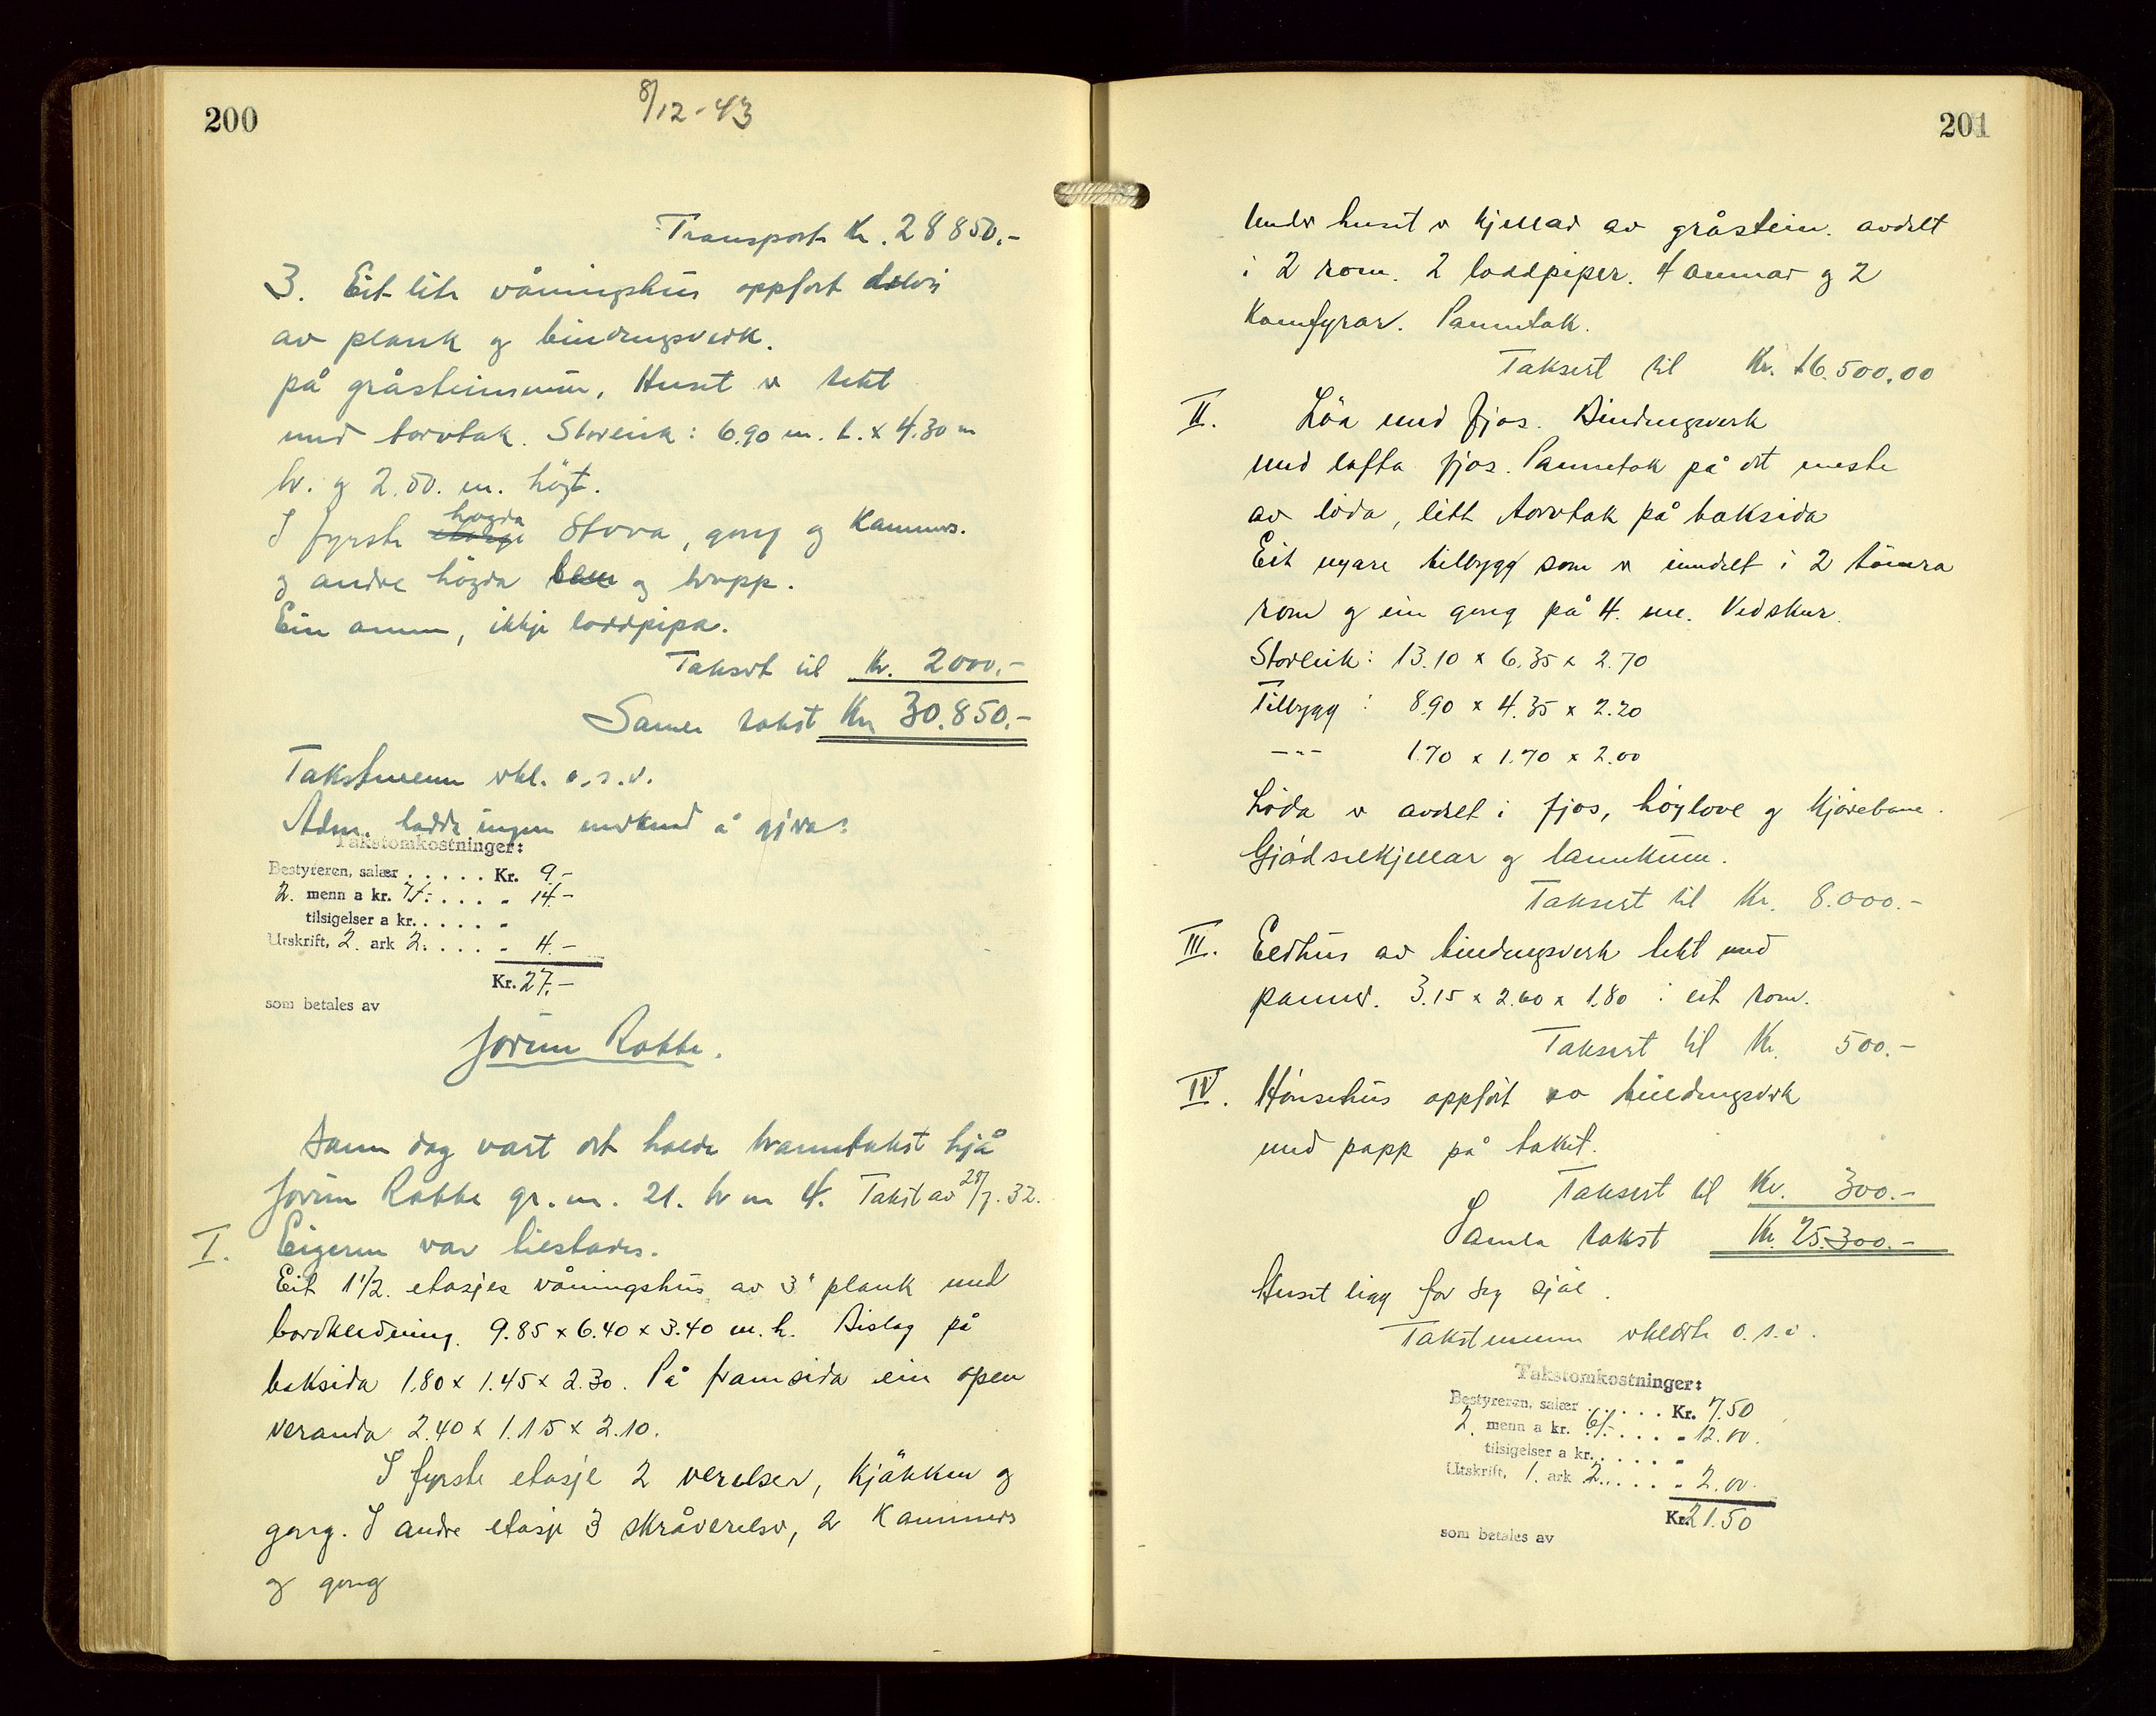 200
8/12-43
Transport Kr. 28850.-
3. Eit lite våningshus oppfört delvis
av plank og bindingsverk.
på gråsteinsmur. Huset er tekt
med torvtak. Storleik: 6.90 m. l. x 4.30 m
br. og 2.50. m. högt.
högda
I fyrste etasje Stova, gong og Kammers.
og andre högda lem og trapp.
Ein omn, ikkje loddpipa.
Taksert til Kr. 2000.-
Samla takst Kr 30.850.-
Takstmenn erkl. o.s.v.
Adm. hadde ingen merknad å gjera.
Takstomkostninger:
Bestyreren, salær . . . . . Kr. 9.-
2. menn a kr. 7/-. . . . „ 14.-
tilsigelser a kr. . . . . „
Utskrift, 2. ark 2. . . . . „ 4.-
Kr. 27.-
som betales av
Jørun Rabbe.
Same dag vart det halde branntakst hjå
Jørun Rabbe gr. nr. 21. br nr 4. Takst av 28/7. 32.
I. Eigeren var tilstades.
Eit 1 1/2. etasjes våningshus, av 3" plank med
bordkledning. 9.85 x 6.40 x 3.40 m. h. Bislag på
baksida 1.80 x 1.45 x 2.30. På framsida ein open
veranda 2.40 x 1.15 x 2.10.
I fyrste etasje 2 verelser, Kjökken og
gong. I andre etasje 3 skråverelser, 2 Kammers
og gong
201
Under huset er kjellar av gråstein. avdelt
i 2 rom. 2 loddpiper. 4 omnar og 2
Komfyrar. Pannetak.
Taksert til Kr. 16.500,00
II. Löa med fjos. Bindingsverk
med lafta fjos. Pannetak på det meste
av löda, litt torvtak på baksida
Eit nyare tilbygg som er inndelt i 2 tömra
rom og ein gong på 4. me. Vedskur.
Storleik: 13.10 x 6.35 x 2.70
Tilbygg : 8.90 x 4.35 x 2.20
-"- 1.70 x 1.70 x 2.00
Löda er avdelt i fjos, höylove og Kjörebane.
Gjödselkjellar og lannkum.
Taksert til Kr. 8.000.-
III. Eldhus av bindingsverk tekt med
panner. 3.15 x 2.60 x 1.80 : eit rom.
Taksert til Kr. 500.-
IV. Hönsehus oppfört av bindingsverk
med papp på taket.
Taksert til Kr. 300.-
Samla takst Kr. 25.300.-
Huset ligg for seg sjöl.
Takstmenn erklærte o.s.v.
Takstomkostninger:
Bestyreren, salær . . . . . Kr. 7.50
2. menn a kr. 6/-. . . . „ 12.00.
tilsigelser a kr. . . . . „
Utskrift, 1. ark 2. . . . . „ 2.00.
Kr. 21.50
som betales av